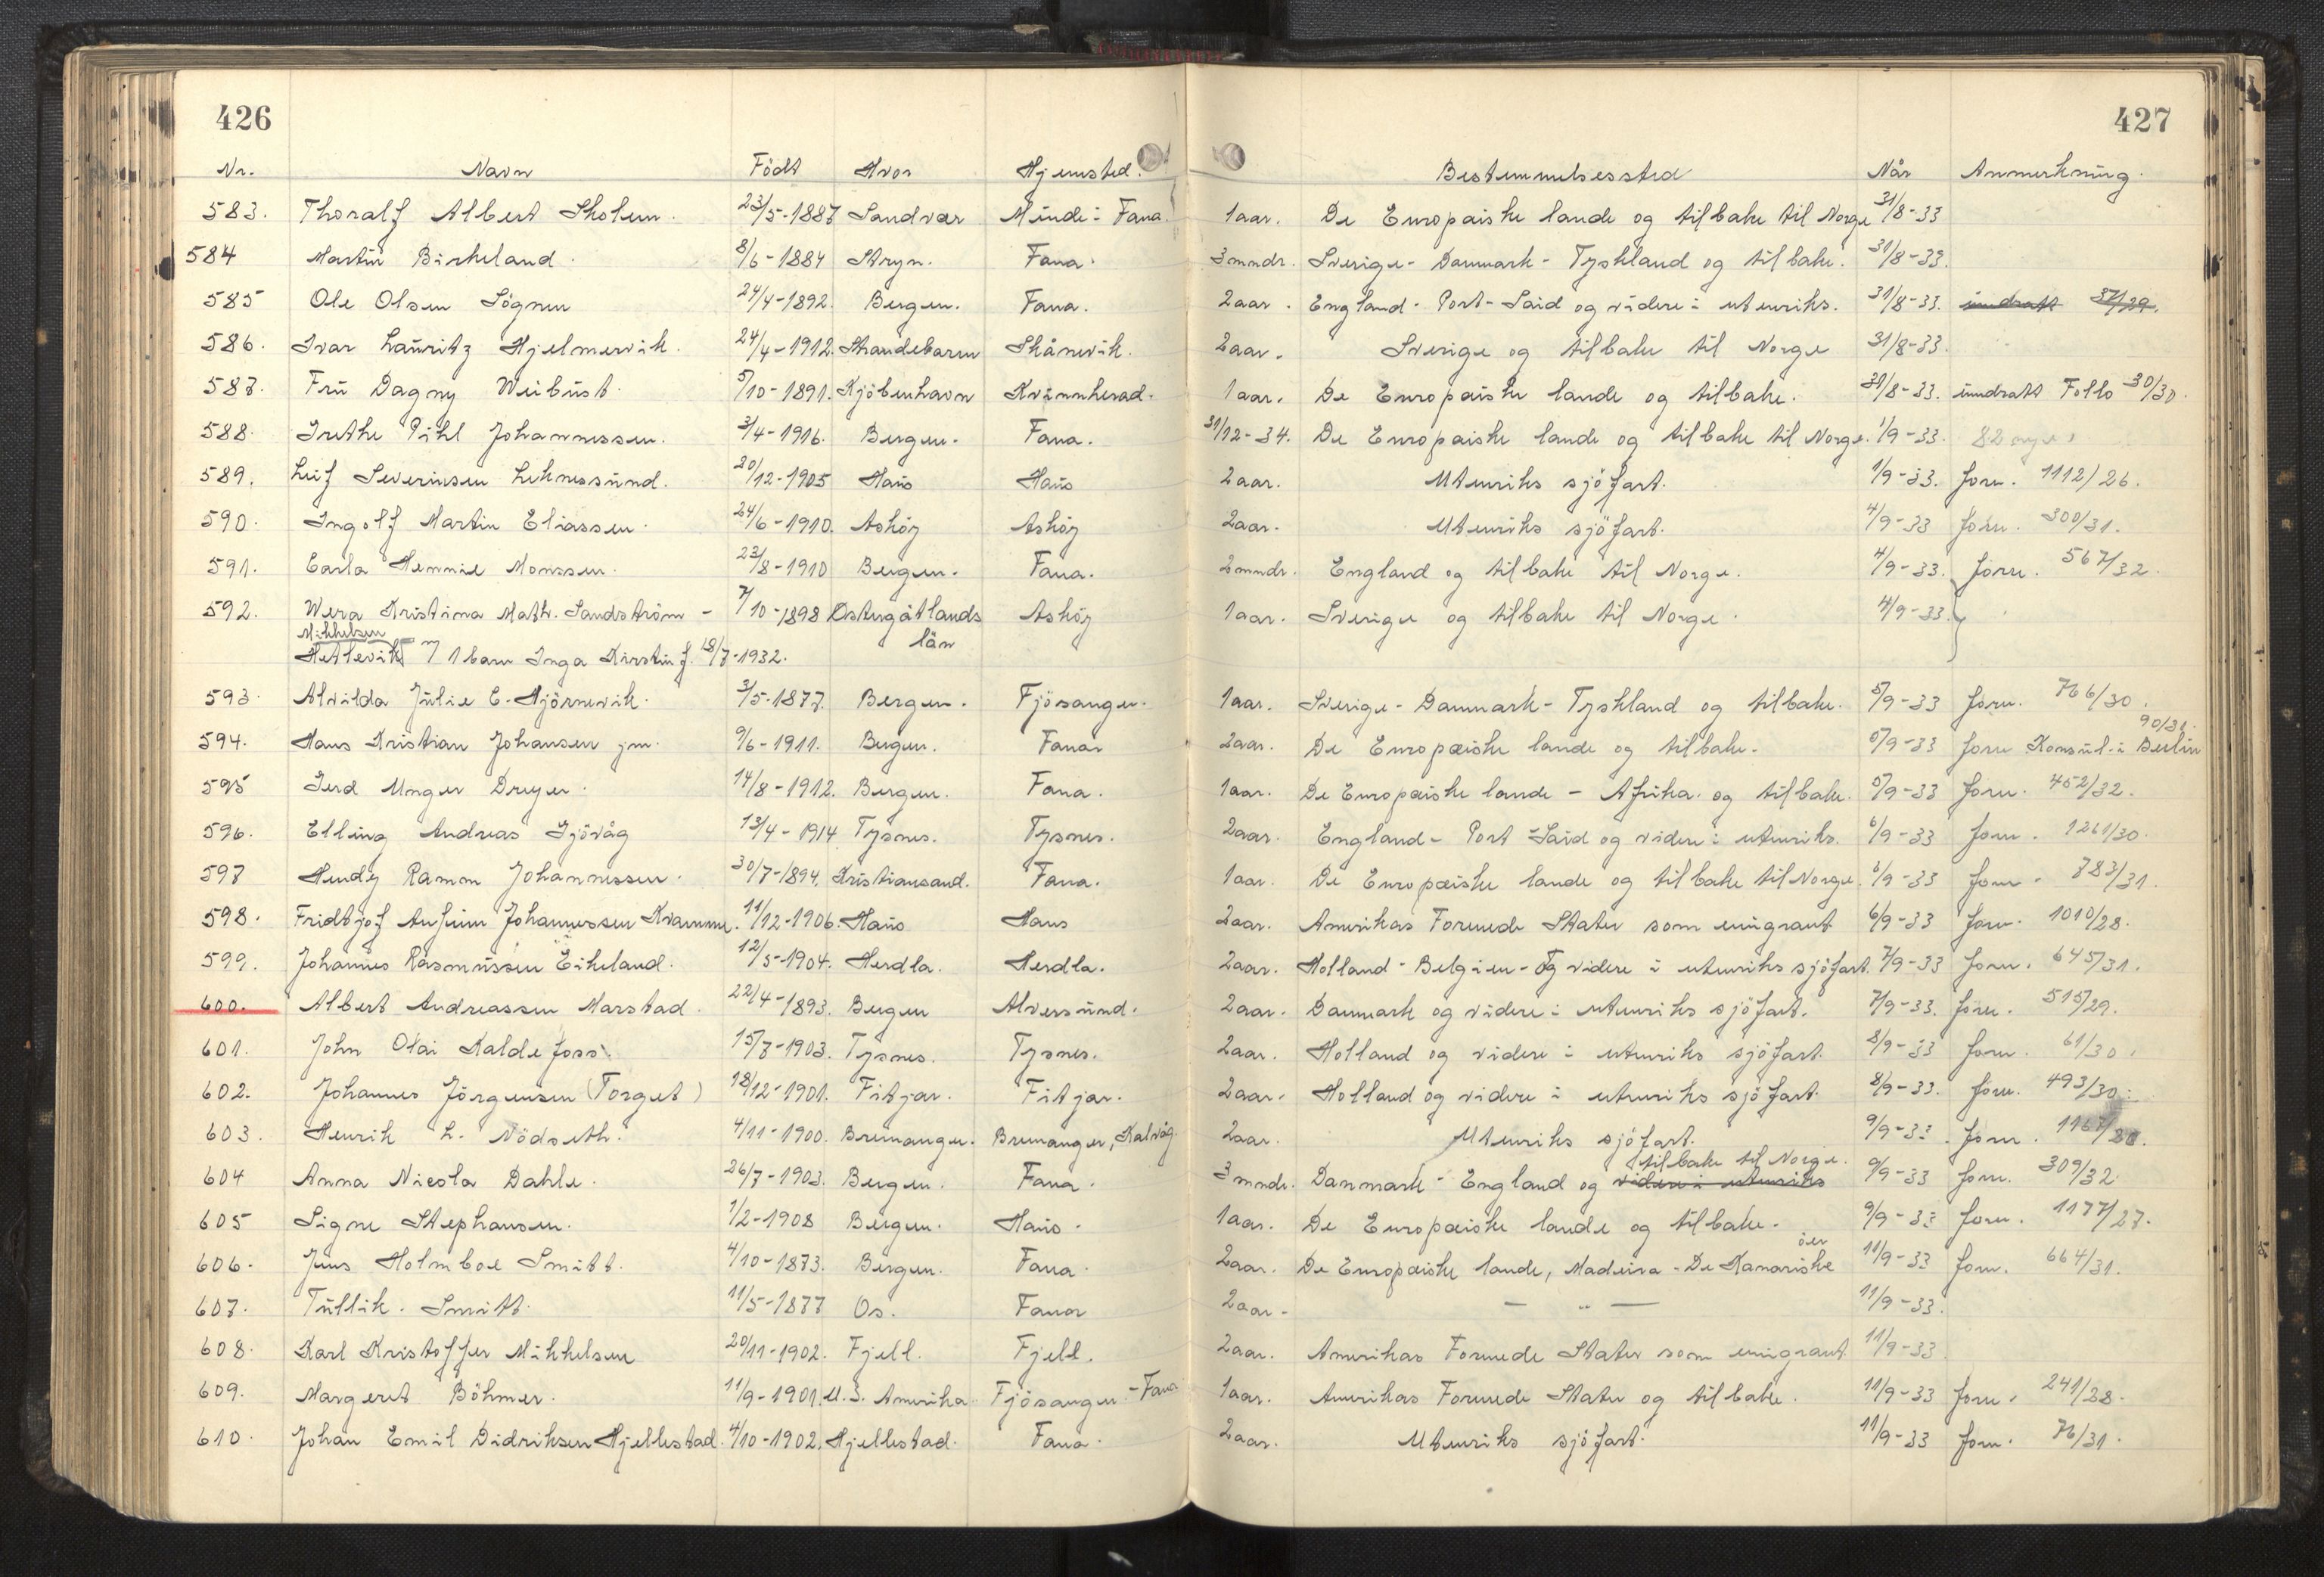 426
427
Nr. Navn Födt Hvor Hjemsted. Bestemmelsessted Når Anmerkning.
583. Thoralf Albert Skolem. 23/5-1887 Sandvær Minde i Fana. 1 aar. De Europæiske lande og tilbake til Norge 31/8-33
584 Martin Birkeland. 8/6-1884 Stryn. Fana. 3 mndr. Sverige - Danmark - Tyskland og tilbake. 31/8-33.
585 Ole Olsen Sögnen 24/4-1892. Bergen. Fana. 2 aar. England - Port-Said og videre i utenriks. 31/8-33. inndratt 37/29.
586. Ivar Lauritz Hjelmervik. 24/4-1912. Strandebarm Skånevik. 2 aar. Sverige og tilbake til Norge 31/8-33.
587. Fru Dagny Weibust. 5/10-1891. Kjöbenhavn Kvinnherad. 1 aar. De Europæiske lande og tilbake. 31/8-33. inndratt Follo 30/30.
588. Grethe Pihl Johannessen. 3/4-1916. Bergen. Fana. 31/12-34. De Europæiske lande og tilbake til Norge. 1/9-33.
589. Leif Severinsen Leknessund. 20/12-1905 Haus Haus 2 aar. Utenriks sjöfart. 1/9-33. forn. 1112/26.
590. Ingolf Martin Eliassen. 24/6-1910. Asköy Asköy 2 aar. Utenriks sjöfart. 4/9-33 forn. 300/31.
591. Carla Hennie Monssen. 23/8-1910 Bergen. Fana. 2 mndr. England og tilbake til Norge. 4/9-33. forn. 567/32.
592. Wera Kristina Math. Sandström - 7/10-1898 Östergötlands Asköy 1 aar. Sverige og tilbake til Norge. 4/9-33.
Mikkelsen
Hetlevik m/ 1 barn Inga Kirstin f. 18/7-1932. län
593. Alvilda Julie C. Hjörnevik. 3/5-1877 Bergen. Fjösanger. 1 aar. Sverige - Danmark - Tyskland og tilbake. 5/9-33 forn. 766/30.
594. Hans Kristian Johansen jnr. 9/6-1911. Bergen. Fana 2 aar. De Europæiske lande og tilbake. 5/9-33 forn Konsul. i Berlin 90/31.
595 Gerd Unger Dreyer. 14/8-1912. Bergen. Fana. 1 aar. De Europæiske lande - Afrika. og tilbake. 5/9-33 forn. 452/32.
596. Elling Andreas Gjövåg 13/4-1914 Tysnes. Tysnes. 2 aar. England - Port-Said og videre i utenriks. 6/9-33 forn. 1261/30.
597 Hendy Ramm Johannessen. 30/7-1894. Kristiansand. Fana. 1 aar. De Europæiske lande og tilbake til Norge. 6/9-33 forn. 783/31.
598. Fridtjof Anfinn Johannessen Kvamme. 11/12-1906. Haus Haus 2 aar. Amerikas Forenede Stater som emigrant. 6/9-33 forn. 1010/28.
599. Johannes Rasmussen Eikeland. 12/5-1904. Herdla. Herdla. 2 aar. Holland - Belgien - Og videre i utenriks sjöfart. 7/9-33 forn. 645/31.
600. Albert Andreassen Marstad. 22/4-1893. Bergen Alversund. 2 aar. Danmark og videre i utenriks sjöfart. 7/9-33. forn. 515/29.
601. John Olai Kaldefoss. 15/7-1903. Tysnes. Tysnes. 2 aar. Holland og videre i utenriks sjöfart. 8/9-33 forn. 61/30.
602. Johannes Jörgensen (Torget) 18/12-1901. Fitjar. Fitjar. 2 aar. Holland og videre i utenriks sjöfart. 8/9-33. forn. 493/30.
603. Henrik L. Nödseth. 4/11-1900. Bremanger. Bremanger, Kalvåg. 2 aar. Utenriks sjöfart. 9/9-33. forn.
tilbake til Norge.
604 Anna Nicola Dahle. 26/7-1903. Bergen. Fana. 3 mndr. Danmark - England og videre i utenriks 9/9-33 forn. 309/32
605 Signe Stephansen. 1/2-1908 Bergen. Haus. 1 aar. De Europæiske lande og tilbake. 9/9-33 forn. 1177/27.
öer
606. Jens Holmboe Smitt. 4/10-1873. Bergen. Fana. 2 aar. De Europæiske lande, Madeira - De Kanariske 11/9-33 forn. 664/31.
607. Tullik. Smitt. 11/5-1877 Os. Fana 2 aar. — " — 11/9-33.
608. Karl Kristoffer Mikkelsen 20/11-1902. Fjell. Fjell. 2 aar. Amerikas Forenede Stater som emigrant. 11/9-33
609. Margeret Böhmer. 11/9-1901. U.S. Amerika Fjösanger - Fana 1 aar. Amerikas Forenede Stater og tilbake. 11/9-33 forn. 241/28.
610. Johan Emil Didriksen Hjellestad. 4/10-1902. Hjellestad. Fana. 2 aar. Utenriks sjöfart. 11/9-33 forn. 76/31.